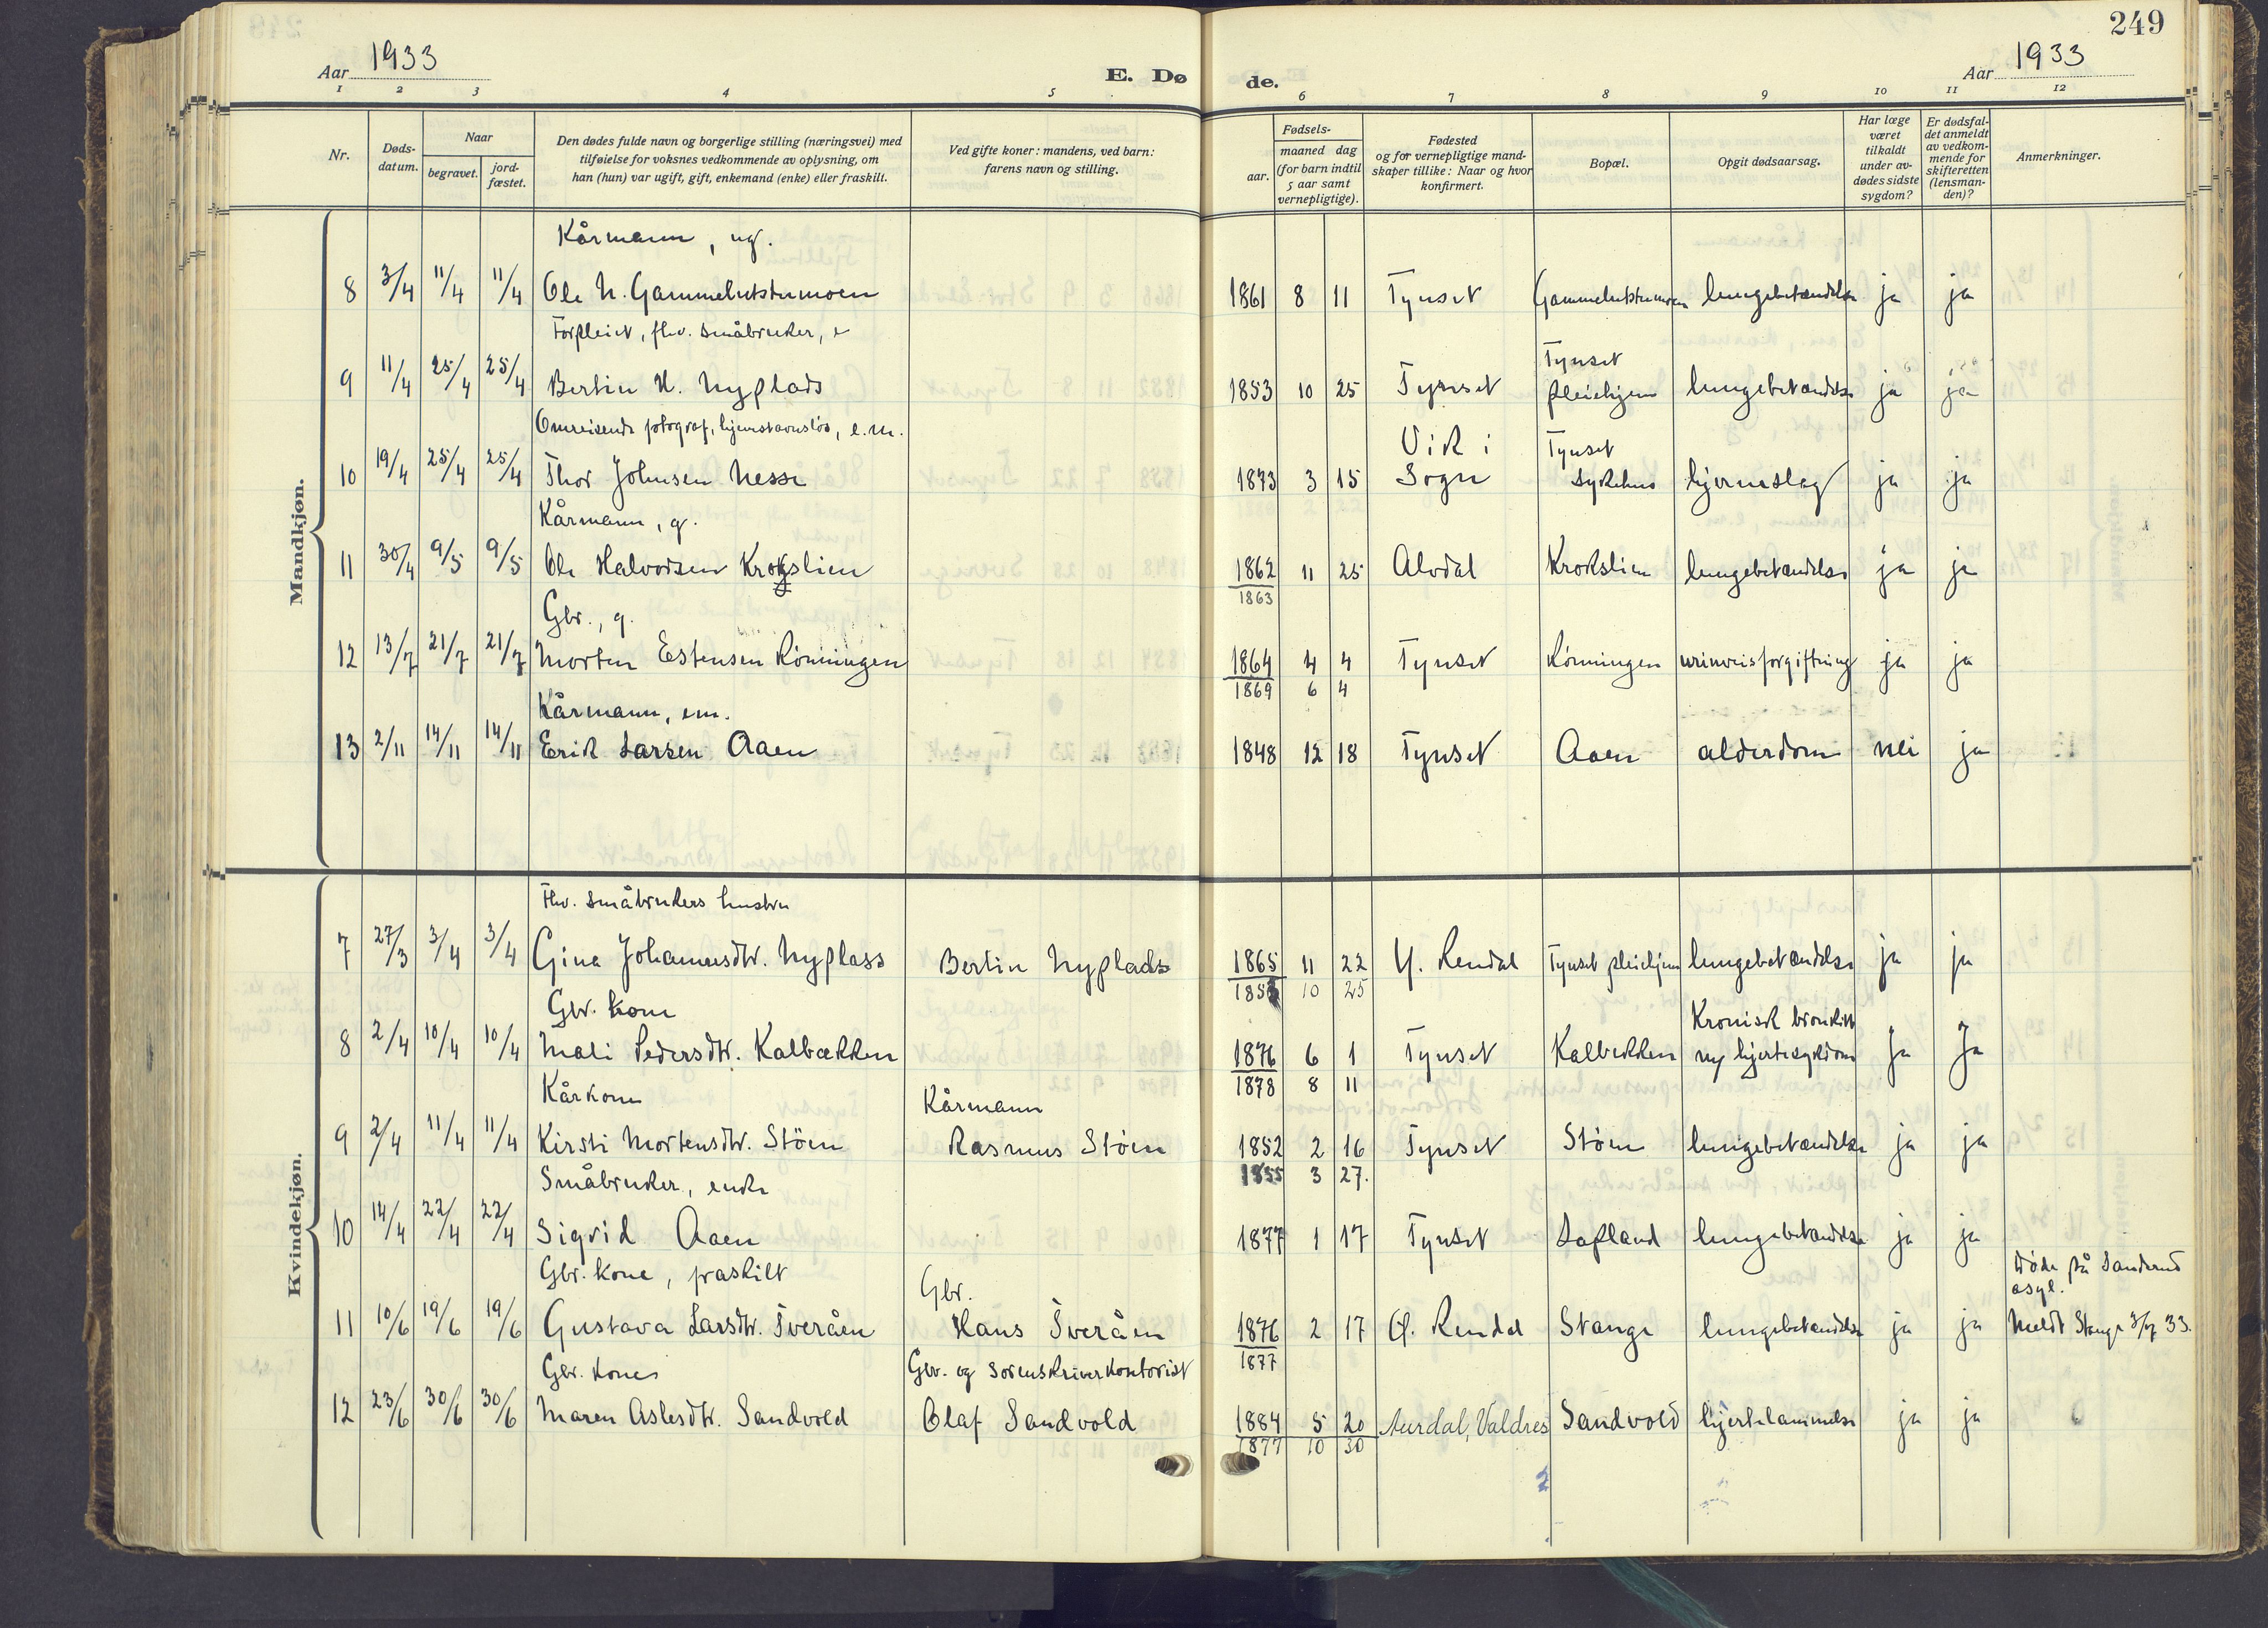 249
Aar 1933
E. Dø de.
Aar 1933
1 2 3 4 5 6 7 8 9 10 11 12
Nr.
Døds-datum.
Naar
begravet.
jord-fæstet.
Den dødes fulde navn og borgerlige stilling (næringsvei) med
tilføielse for voksnes vedkommende av oplysning, om
han (hun) var ugift, gift, enkemand (enke) eller fraskilt.
Ved gifte koner: mandens, ved barn:
farens navn og stilling.
Fødsels-
aar.
maaned dag
(for barn indtil
5 aar samt
vernepligtige).
Fødested
og for vernepligtige mand-
skaper tillike: Naar og hvor
konfirmert.
Bopæl.
Opgit dødsaarsag.
Har læge
været
tilkaldt
under av-
dødes sidste
sygdom?
Er dødsfal-
det anmeldt
av vedkom-
mende for
skifteretten
(lensman-
den)?
Anmerkninger.
Mandkjøn.
Kårmann, ug.
8 3/4 11/4 11/4 Ole N. Gammelutstumoen 1861 8 11 Tynset Gammelutstumoen lungebetændelse ja ja
Forpleiet, fhv. småbruker, e
Tynset
9 11/4 25/4 25/4 Bertin H. Nyplads 1853 10 25 Tynset pleiehjem lungebetændelse ja ja
Omreisende fotograf, hjemstavnsløs, e.m.
Vik i Tynset
10 19/4 25/4 25/4 Thor Johnsen Nesse 1873 3 15 Sogn sykehus hjerneslag ja ja
Kårmann, g.
11 30/4 9/5 9/5 Ole Halvorsen Krokslien 1862 11 25 Alvdal Krokslien lungebetændelse ja ja
1863
Gbr., g.
12 13/7 21/7 21/7 Morten Estensen Rønningen 1864 4 4 Tynset Rønningen urinveisforgiftning ja ja
1869 6 4
Kårmann, em.
13 2/11 14/11 14/11 Erik Larsen Aaen 1848 12 18 Tynset Aaen alderdom nei ja
Kvindekjøn.
Fhv. småbrukers hustru
7 27/3 3/4 3/4 Gina Johannesdtr. Nyplass Bertin Nyplads 1865 11 22 Y. Rendal Tynset pleiehjem lungebetændelse ja ja
1853 10 25
Gbr. kone
Kronisk bronkitt
8 2/4 10/4 10/4 Mali Pedersdtr. Kalbækken 1876 6 1 Tynset Kalbekken og hjertesykdom ja ja
1878 8 11
Kårkone Kårmann
9 2/4 11/4 11/4 Kirsti Mortensdtr. Støen Rasmus Støen 1852 2 16 Tynset Støen lungebetændelse ja ja
1855 3 27.
Småbruker, enke
10 14/4 22/4 22/4 Sigrid Aaen 1877 1 17 Tynset Lapland lungebetændelse ja ja
Gbr. kone, fraskilt Gbr.
Døde på Sanderud
asyl.
11 10/6 19/6 19/6 Gustava Larsdtr. Tveråen Hans Tveråen 1876 2 17 Ø. Rendal Stange lungebetændelse ja ja Meldt Stange 3/7 33.
1877
Gbr. kone Gbr. og sorenskriverkontorist
12 23/6 30/6 30/6 Maren Aslesdtr. Sandvold Olaf Sandvold 1884 5 20 Aurdal, Valdres Sandvold hjertelammelse ja ja
1877 10 30
2